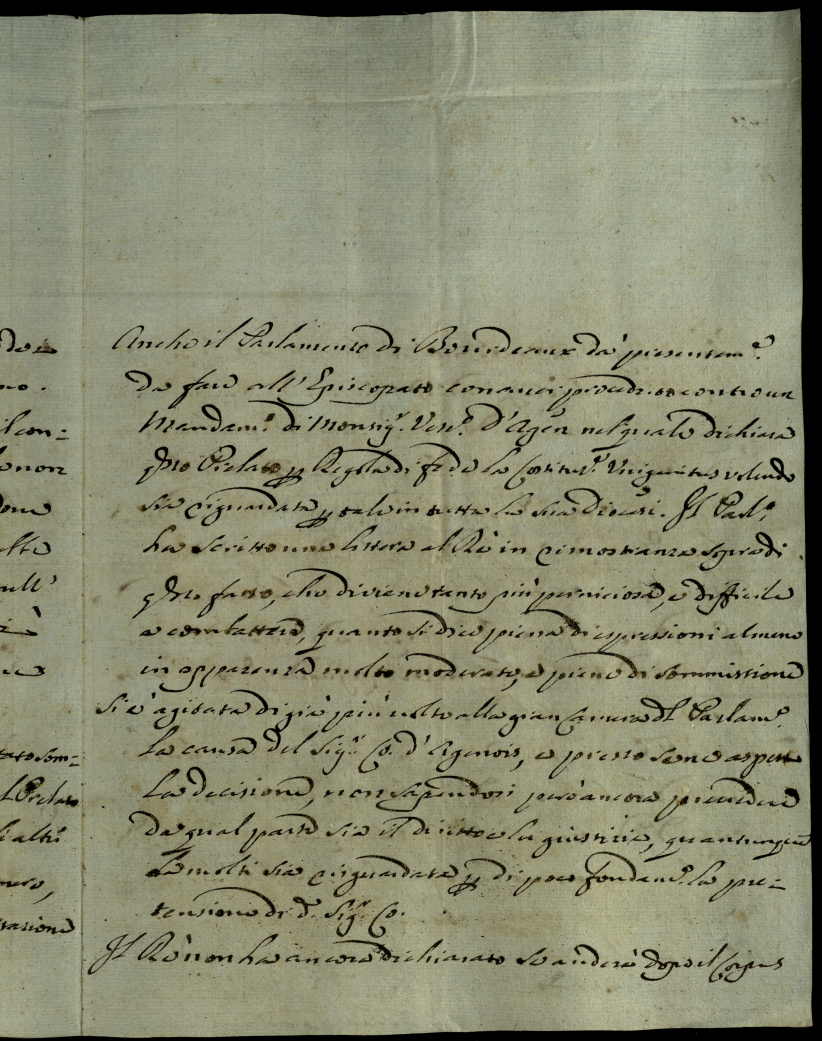 do è
no.
il con=
e non
dove
atte
nell'
è
ne
tato som=
l Prelato
li altri
nero,
razione
Anche il Parlamento di Bourdeaux dà presentem.e
da fare all'Episcopato con aver proceduto contro un
Mandam.o di Monsig.r Vesc.o d'Agen nel quale dichiara
q̃sto Prelato ꝑ Regola di fede la Costituz.e Unigenitus volendo
sia riguardata ꝑ tale in tutta la sua Diocesi. Il Parl.o
ha scritto una lettera al Rè in rimostranza sopra di
q̃sto fatto, che diviene tanto più perniciosa, e difficile
a combattere, quanto si dice piena di espressioni almeno
in apparenza molto moderate, e piene di sommissione
Si è agitata di già più volte alla gran Camera del Parlam.o
la causa del Sig.r Co. d'Agenois, e presto se ne aspetta
la decisione, non sapendosi però ancora prevedere
da qual parte sia il diritto e la giustizia, quantunque
da molti sia risguardata ꝑ di poco fondam.o la pre=
tensione di d.o Sig.r Co.
Il Rè non ha ancora dichiarato se anderà dopo il Corpus